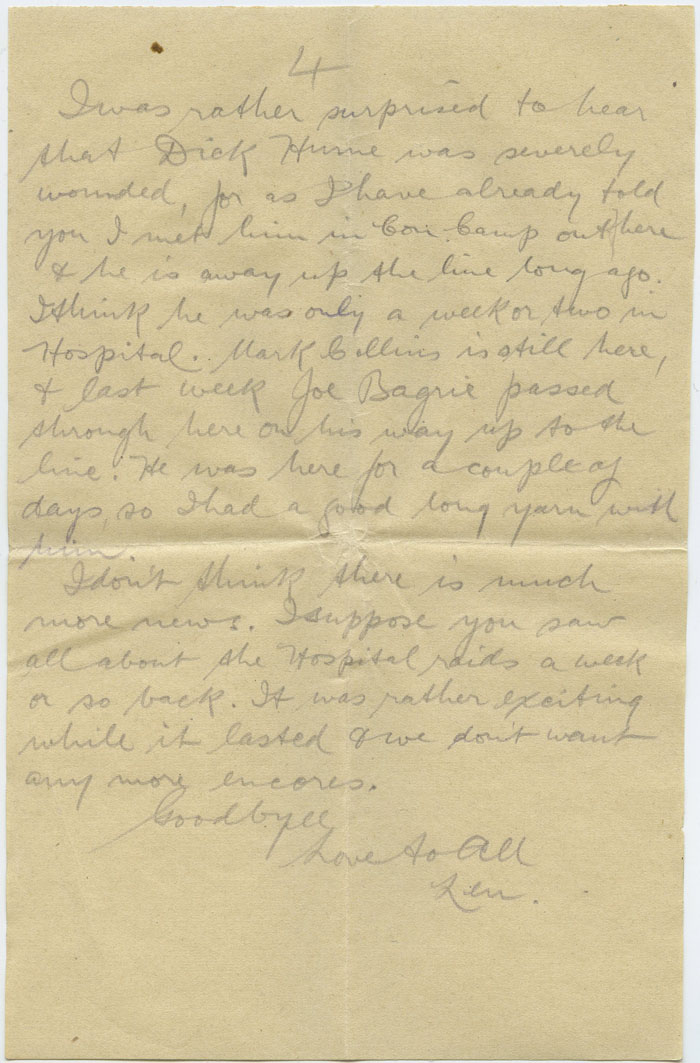 4
I was rather surprised to hear
that Dick Hume was severely
wounded, for as I have already told
you I met him in Con. Camp out here
& he is away up the line long ago.
I think he was only a week or two in
Hospital. Mark Collins is still here,
& last week Joe Bagrie passed
through here on his way up to the
line. He was here for a couple of
days, so I had a good long yarn with
him.
I don't think there is much
more news. I suppose you saw
all about the Hospital raids a week
or so back. It was rather exciting
while it lasted & we don't want
any more encores.
Goodbyee
Love to All
Len.